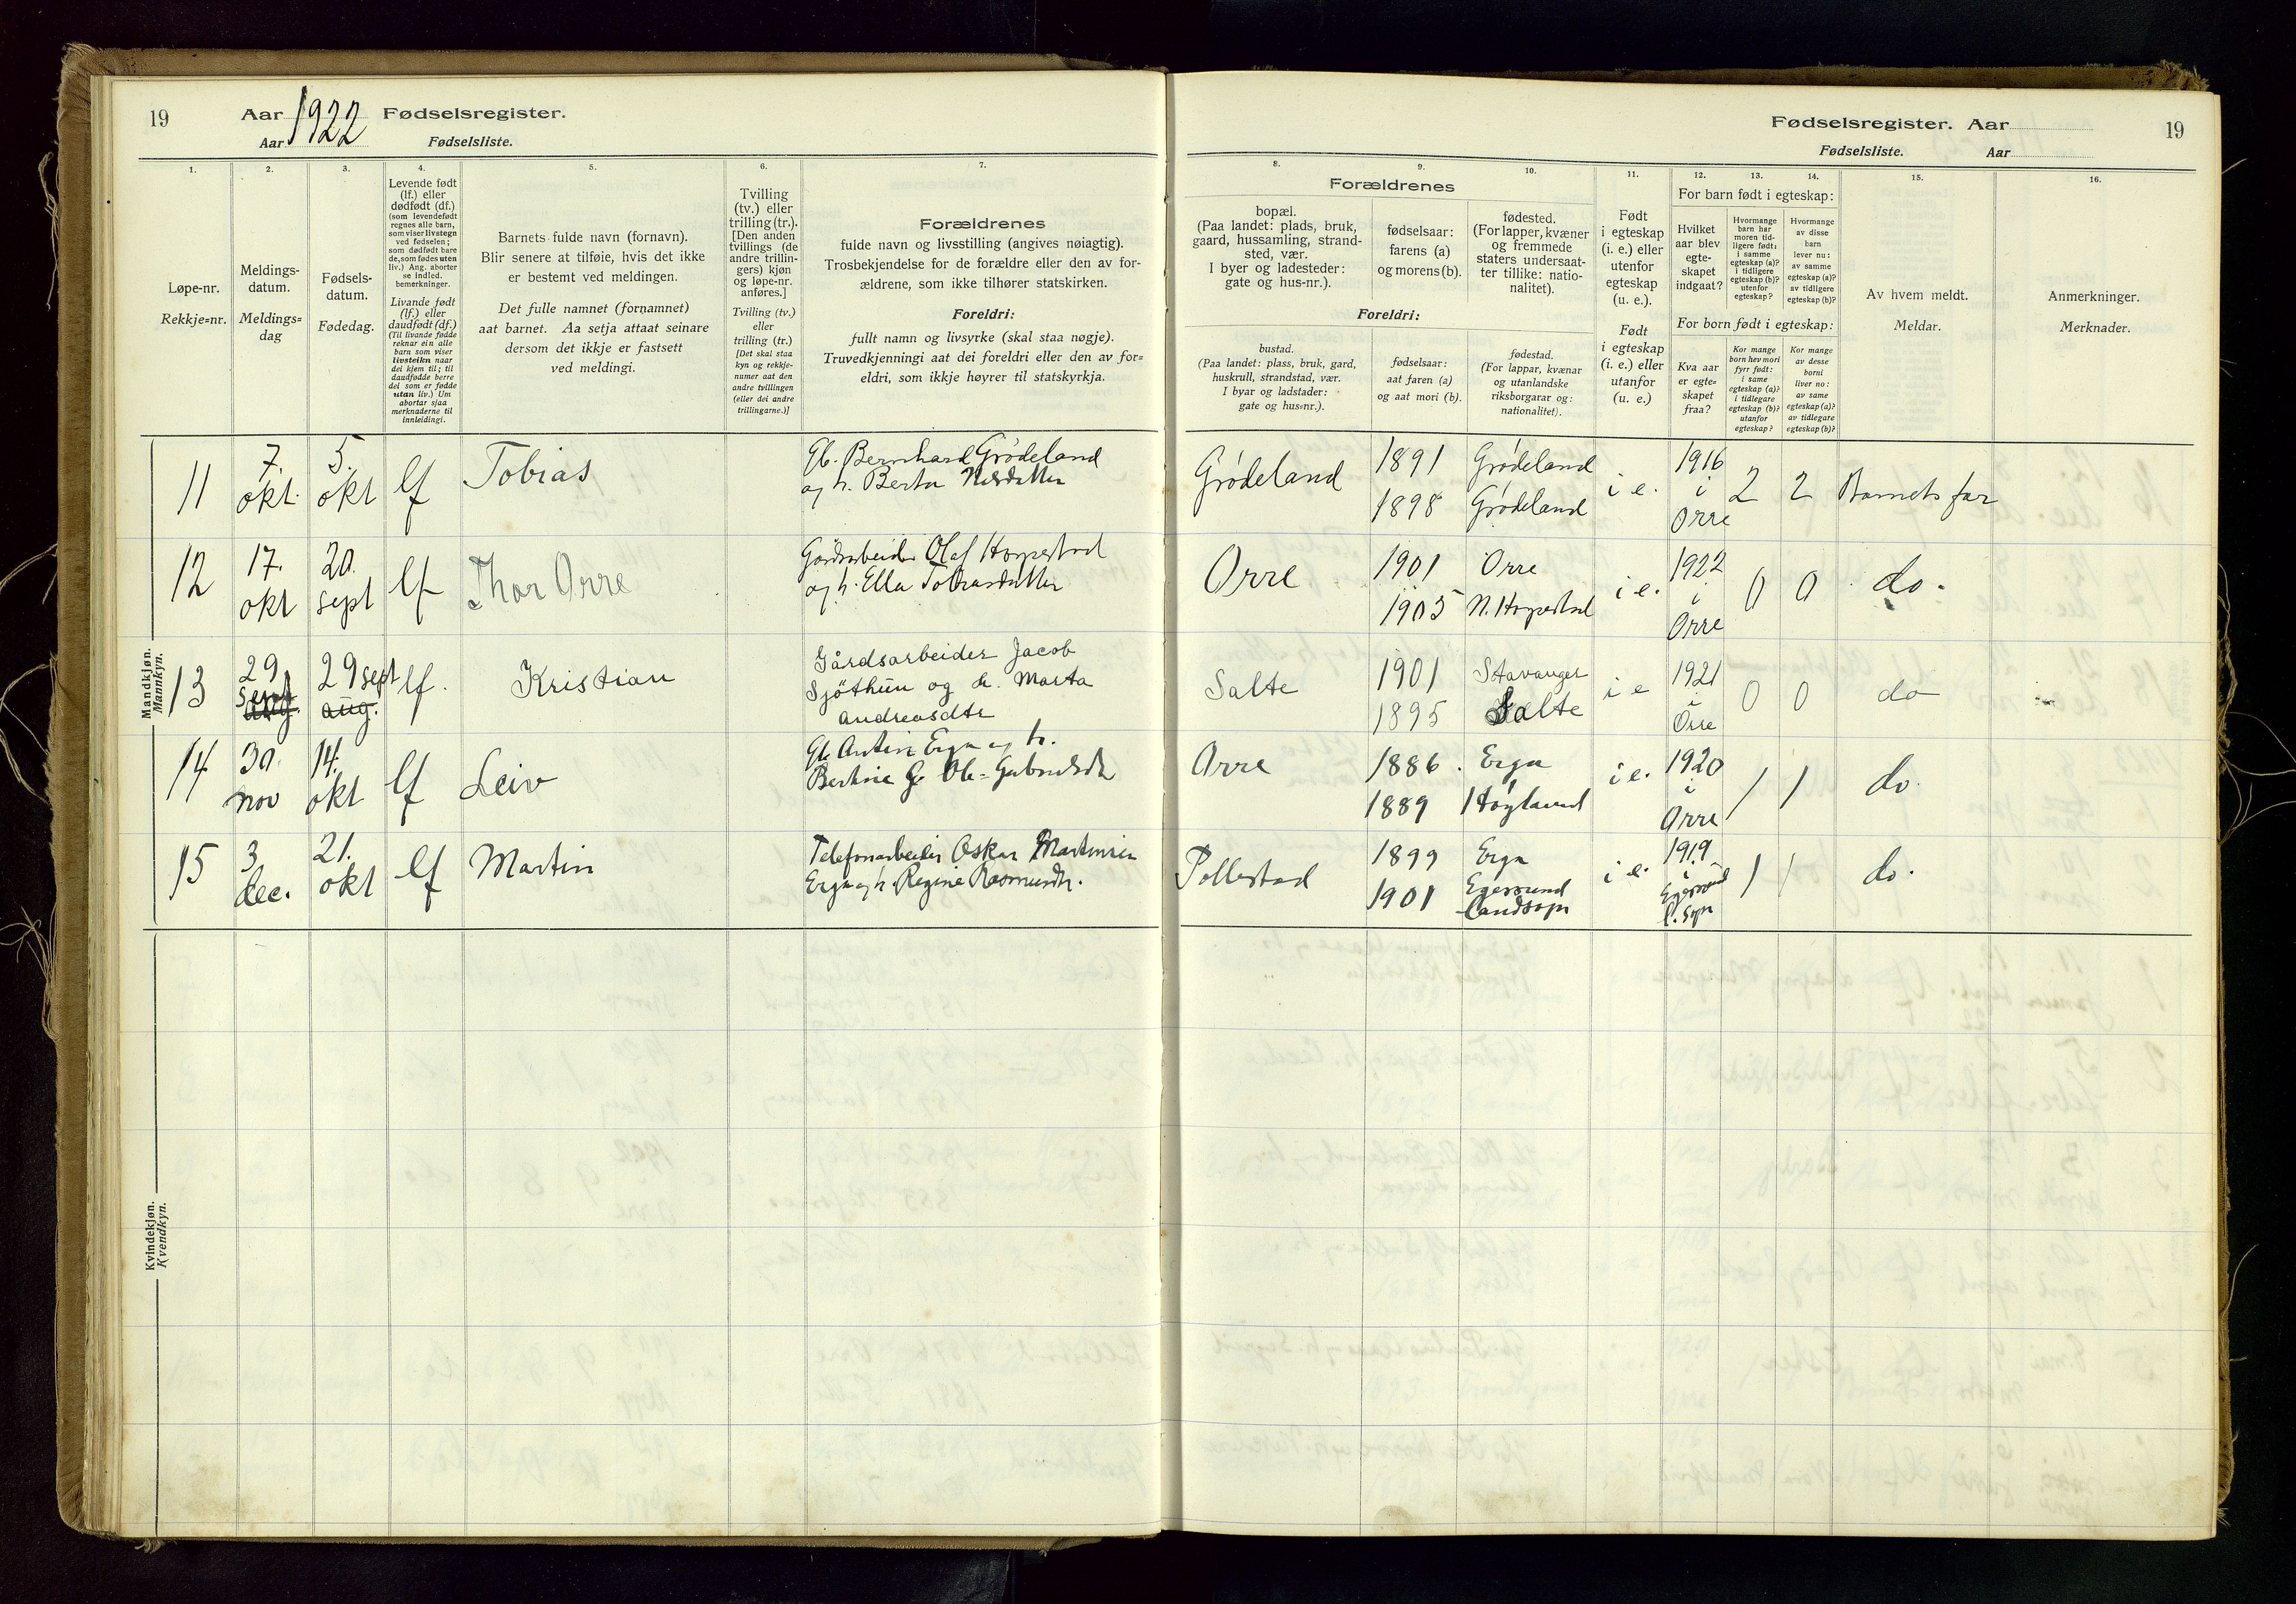 19
Aar 1922 Fødselsregister.
Aar Fødselsliste.
1.
2.
3.
4.
5.
6.
7.
Løpe-nr.
Rekkje=nr.
Meldings-
datum.
Meldings=
dag
Fødsels-
datum.
Fødedag.
Levende født
(lf.) eller
dødfødt (df.)
(som levendefødt
regnes alle barn,
som viser livstegn
ved fødselen;
som dødfødt bare
de, som fødes uten
liv.) Ang. aborter
se indled.
bemerkninger.
Livande født
(lf.) eller
daudfødt (df.)
(Til livande fødde
reknar ein alle
barn som viser
livsteikn naar
dei kjem til; til
daudfødde berre
dei som er fødde
utan liv.) Um
abortar sjaa
merknaderne til
innleidingi.
Barnets fulde navn (fornavn).
Blir senere at tilføie, hvis det ikke
er bestemt ved meldingen.
Det fulle namnet (fornamnet)
aat barnet. Aa setja attaat seinare
dersom det ikkje er fastsett
ved meldingi.
Tvilling
(tv.) eller
trilling (tr.).
[Den anden
tvillings (de
andre trillin-
gers) kjøn
og løpe-nr.
anføres.]
Tvilling (tv.)
eller
trilling (tr.)
[Det skal staa
kyn og rekkje-
numer aat den
andre tvillingen
(eller dei andre
trillingarne.)]
Forældrenes
fulde navn og livsstilling (angives nøiagtig).
Trosbekjendelse for de forældre eller den av for-
ældrene, som ikke tilhører statskirken.
Foreldri:
fullt namn og livsyrke (skal staa nøgje).
Truvedkjenningi aat dei foreldri eller den av for=
eldri, som ikkje høyrer til statskyrkja.
Mandkjøn.
Mannkyn.
11
7.
okt.
5.
okt
lf
Tobias
Gb. Bernhard Grødeland
og h. Berta Nilsdatter
12
17.
okt
20.
sept
lf
Thor Orre
Gårdsarbeider Olaf Horpestad
og h. Ella Tobiasdatter
13
29
sept
aug.
29 sept
aug.
lf.
Kristian
Gårdsarbeider Jacob
Sjöthun og h. Marta
Andreasdtr
14
30.
nov
14.
okt
lf
Leiv
Gb Antin Erga og h.
Bertine Ole-Gabrielsdtr
15
3
dec.
21.
okt
lf
Martin
Telefonarbeider Oskar Martinsen
Erga og h. Regine Rasmusdtr.
Kvindekjøn.
Kvendkyn.
Fødselsregister. Aar
Fødselsliste. Aar
19
8.
9.
10.
11.
12.
13.
14.
15.
16.
Forældrenes
bopæl.
(Paa landet: plads, bruk,
gaard, hussamling, strand-
sted, vær.
I byer og ladesteder:
gate og hus-nr.).
fødselsaar:
farens (a)
og morens (b).
fødested.
(For lapper, kvæner
og fremmede
staters undersaat-
ter tillike: natio-
nalitet).
Foreldri:
bustad.
(Paa landet: plass, bruk, gard,
huskrull, strandstad, vær.
I byar og ladstader:
gate og hus=nr.).
fødselsaar:
aat faren (a)
og aat mori (b).
fødestad.
(For lappar, kvænar
og utanlandske
riksborgarar og:
nationalitet).
Født
i egteskap
(i. e.) eller
utenfor
egteskap
(u. e.).
Født
i egteskap
(i. e.) eller
utanfor
(u. e.)
For barn født i egteskap:
Hvilket
aar blev
egte-
skapet
indgaat?
Hvormange
barn har
moren tid-
ligere født:
i samme
egteskap (a)?
i tidligere
egteskap (b)?
utenfor
egteskap?
Hvormange
av disse
barn
lever nu:
av samme
egteskap (a)?
av tidligere
egteskap (b)?
For born født i egteskap:
Kva aar
er egte=
skapet
fraa?
Kor mange
born hev mori
fyrr født:
i same
egteskap (a)?
i tidlegare
egteskap (b)?
utanfor
egteskap?
Kor mange
av desse
borni
liver no:
av same
egteskap (a)?
av tidlegare
egteskap (b)?
Av hvem meldt.
Meldar.
Anmerkninger.
Merknader.
Grødeland
1891
1898
Grødeland
Grødeland
i e.
1916
i
Orre
2
2
Barnets far
Orre
1901
1905
Orre
N. Horpestad
i e.
1922
i
Orre
0
0
do.
Salte
1901
1895
Stavanger
Salte
i e
1921
i
Orre
0
0
do
Orre
1886
1889
Erga
Høyland
i e.
1920
i
Orre
1
1
do.
Pollestad
1899
1901
Erga
Egersund
landsogn
i e.
1919
i
Egersund
l. sogn
1
1
do.